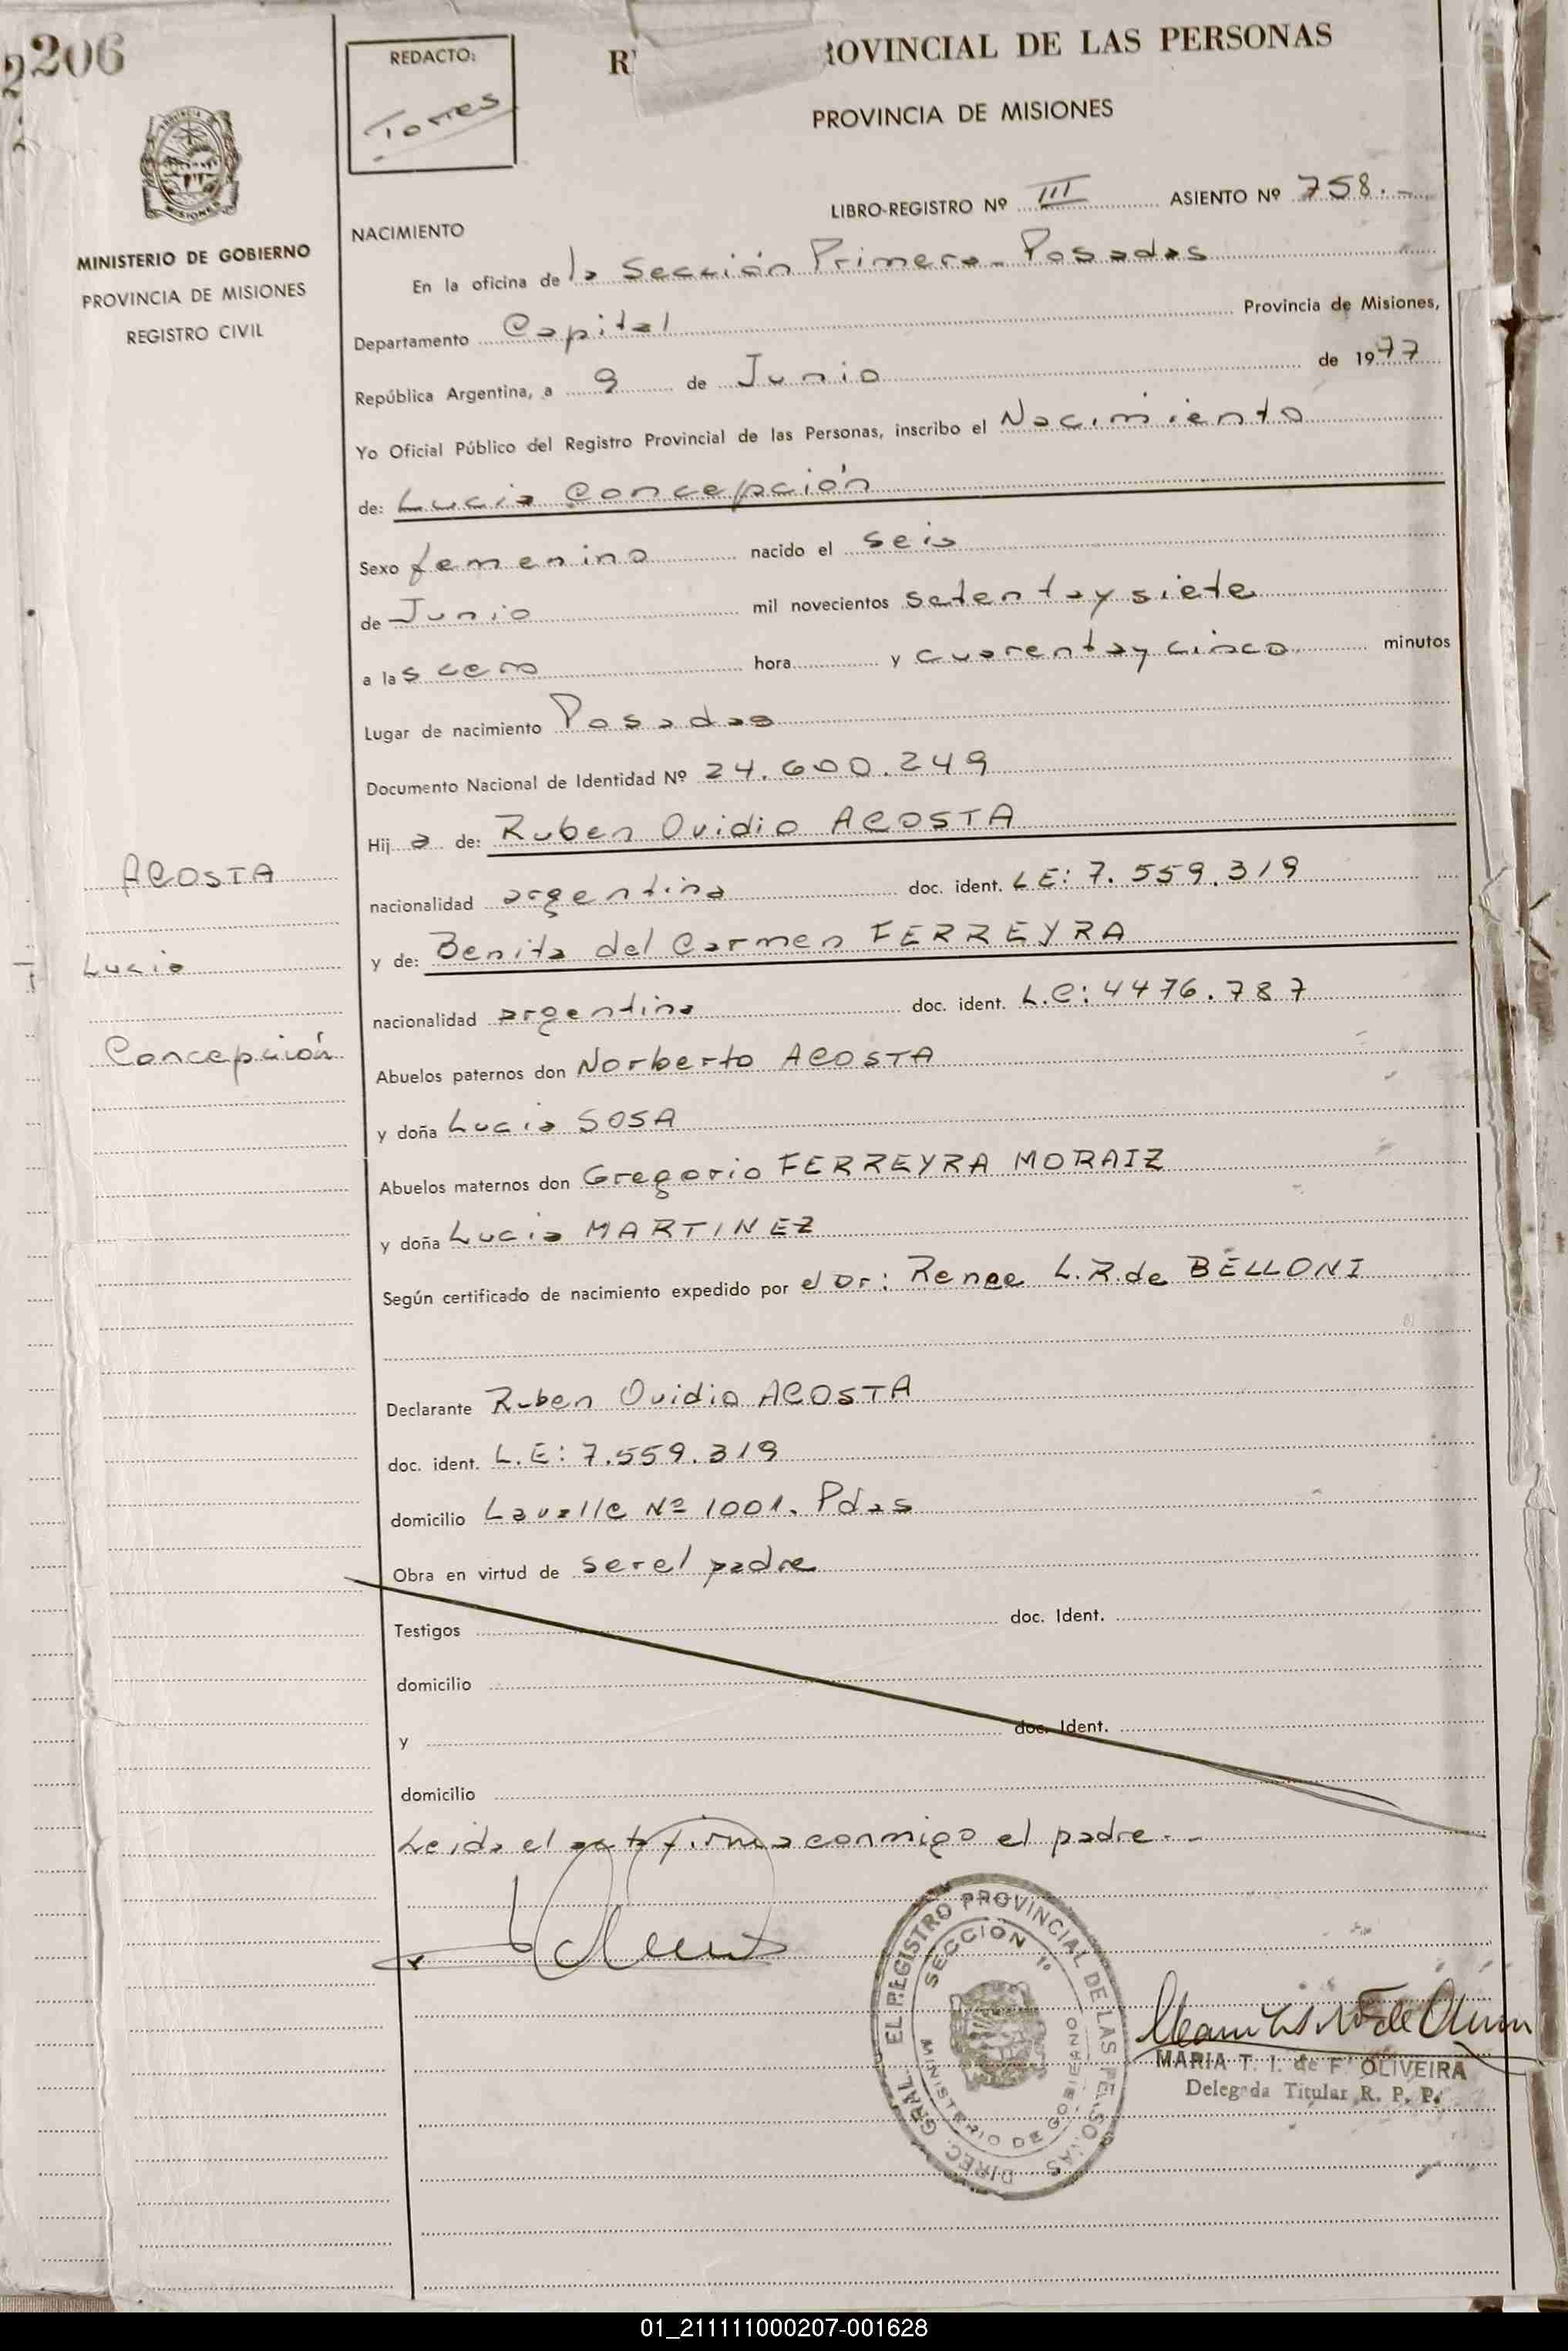 206
REDACTO:
Torres
ROVINCIAL DE LAS PERSONAS
PROVINCIA DE MISIONES
LIBRO-REGISTRO Nº III ASIENTO Nº 758.-
MINISTERIO DE GOBIERNO
PROVINCIA DE MISIONES
REGISTRO CIVIL
NACIMIENTO
En la oficina de la Sección Primera - Posadas
Departamento Capital Provincia de Misiones,
República Argentina, a 9 de Junio de 1977
Yo Oficial Público del Registro Provincial de las Personas, inscribo el Nacimiento
de: Lucia Concepción
Sexo femenino nacido el seis
de Junio mil novecientos setenta y siete
a las cero hora y cuarenta y cinco minutos
Lugar de nacimiento Posadas
Documento Nacional de Identidad Nº 24.600.249
Hij a de: Ruben Ovidio ACOSTA
nacionalidad argentina doc. ident. LE: 7.559.319
y de: Benita del Carmen FERREYRA
nacionalidad argentina doc. ident. L.C: 4476.787
Abuelos paternos don Norberto ACOSTA
y doña Lucia SOSA
Abuelos maternos don Gregorio FERREYRA MORAIZ
y doña Lucia MARTINEZ
Según certificado de nacimiento expedido por el Dr: Renee L.R. de BELLONI
Declarante Ruben Ovidio ACOSTA
doc. ident. L.E: 7.559.319
domicilio Lavalle Nº 1001. Pdas
Obra en virtud de ser el padre
Testigos doc. Ident.
domicilio
y doc. Ident.
domicilio
Leida el acta firma conmigo el padre.-
ACOSTA
Lucia
Concepción
DIREC. GRAL. EL REGISTRO PROVINCIAL DE LAS PERSONAS
SECCION 1º
MINISTERIO DE GOBIERNO
MARIA T. I. de F. OLIVEIRA
Delegada Titular R. P. P.
01_211111000207-001628